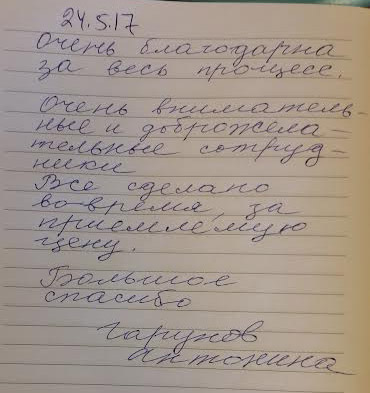 24.5.17
Очень благодарна
за весь процесс.
Очень вниматель-
ные и доброжела-
тельные сотруд-
ники
Все сделано
во время, за
приемлемую
цену.
Большое
спасибо
Антонина